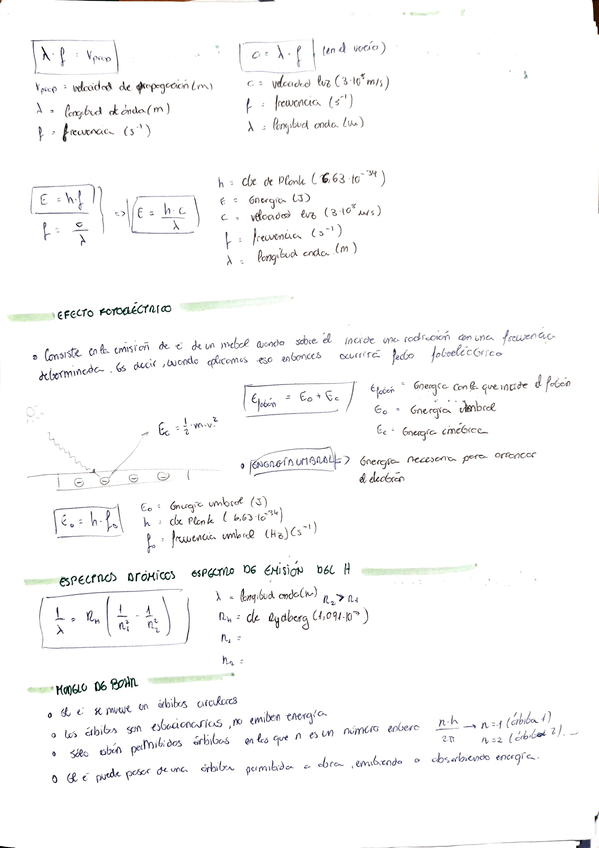 λ · f = Vprop
c = λ · f (en el vacío)
Vprop = velocidad de propagación (m)
c = velocidad luz (3·10⁸ m/s)
λ = longitud de onda (m)
f = frecuencia (s⁻¹)
f = frecuencia (s⁻¹)
λ = longitud onda (m)
E = h·f
f = c/λ
=> E = h·c/λ
h = cte de Plank (6,63·10⁻³⁴)
E = Energía (J)
c = velocidad luz (3·10⁸ m/s)
f = frecuencia (s⁻¹)
λ = longitud onda (m)
EFECTO FOTOELÉCTRICO
• Consiste en la emisión de e⁻ de un metal cuando sobre él incide una radiación con una frecuencia
determinada. Es decir, cuando aplicamos eso entonces ocurrirá fotoeléctrico
Efotón = E₀ + Ec
Efotón = Energía con la que incide el fotón
E₀ = Energía umbral
Ec = Energía cinética
Ec = ½·m·v²
• ENERGÍA UMBRAL => Energía necesaria para arrancar
el electrón
E₀ = h·f₀
E₀ = Energía umbral (J)
h = cte Plank (6,63·10⁻³⁴)
f₀ = frecuencia umbral (Hz) (s⁻¹)
ESPECTROS ATÓMICOS ESPECTRO DE EMISIÓN DEL H
1/λ = RH (1/n₁² - 1/n₂²)
λ = longitud onda (m) n₂ > n₁
RH = cte Rydberg (1,097·10⁷)
n₁ =
n₂ =
MODELO DE BOHR
• El e⁻ se mueve en órbitas circulares
• Las órbitas son estacionarias, no emiten energía
• Sólo están permitidas órbitas en las que n es un número entero n·h/2π → n=1 (órbita 1)
n=2 (órbita 2). -
• El e⁻ puede pasar de una órbita permitida a otra, emitiendo o absorbiendo energía.